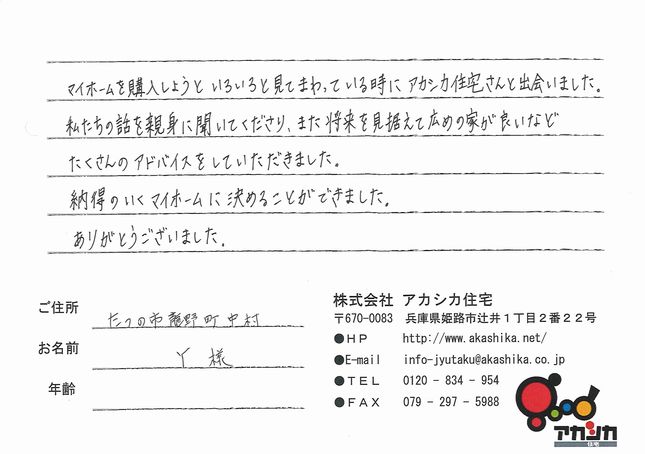 マイホームを購入しようと いろいろと見てまわっている時に アカシカ住宅さんと出会いました。
私たちの話を親身に聞いてくださり、また将来を見据えて広めの家が良いなど
たくさんのアドバイスをしていただきました。
納得のいくマイホームに決めることができました。
ありがとうございました。
ご住所 たつの市龍野町中村
お名前 Y 様
年齢
株式会社 アカシカ住宅
〒670-0083 兵庫県姫路市辻井1丁目2番22号
●HP http://www.akashika.net/
●E-mail info-jyutaku@akashika.co.jp
●TEL 0120 - 834 - 954
●FAX 079 - 297 - 5988
アカシカ
住宅